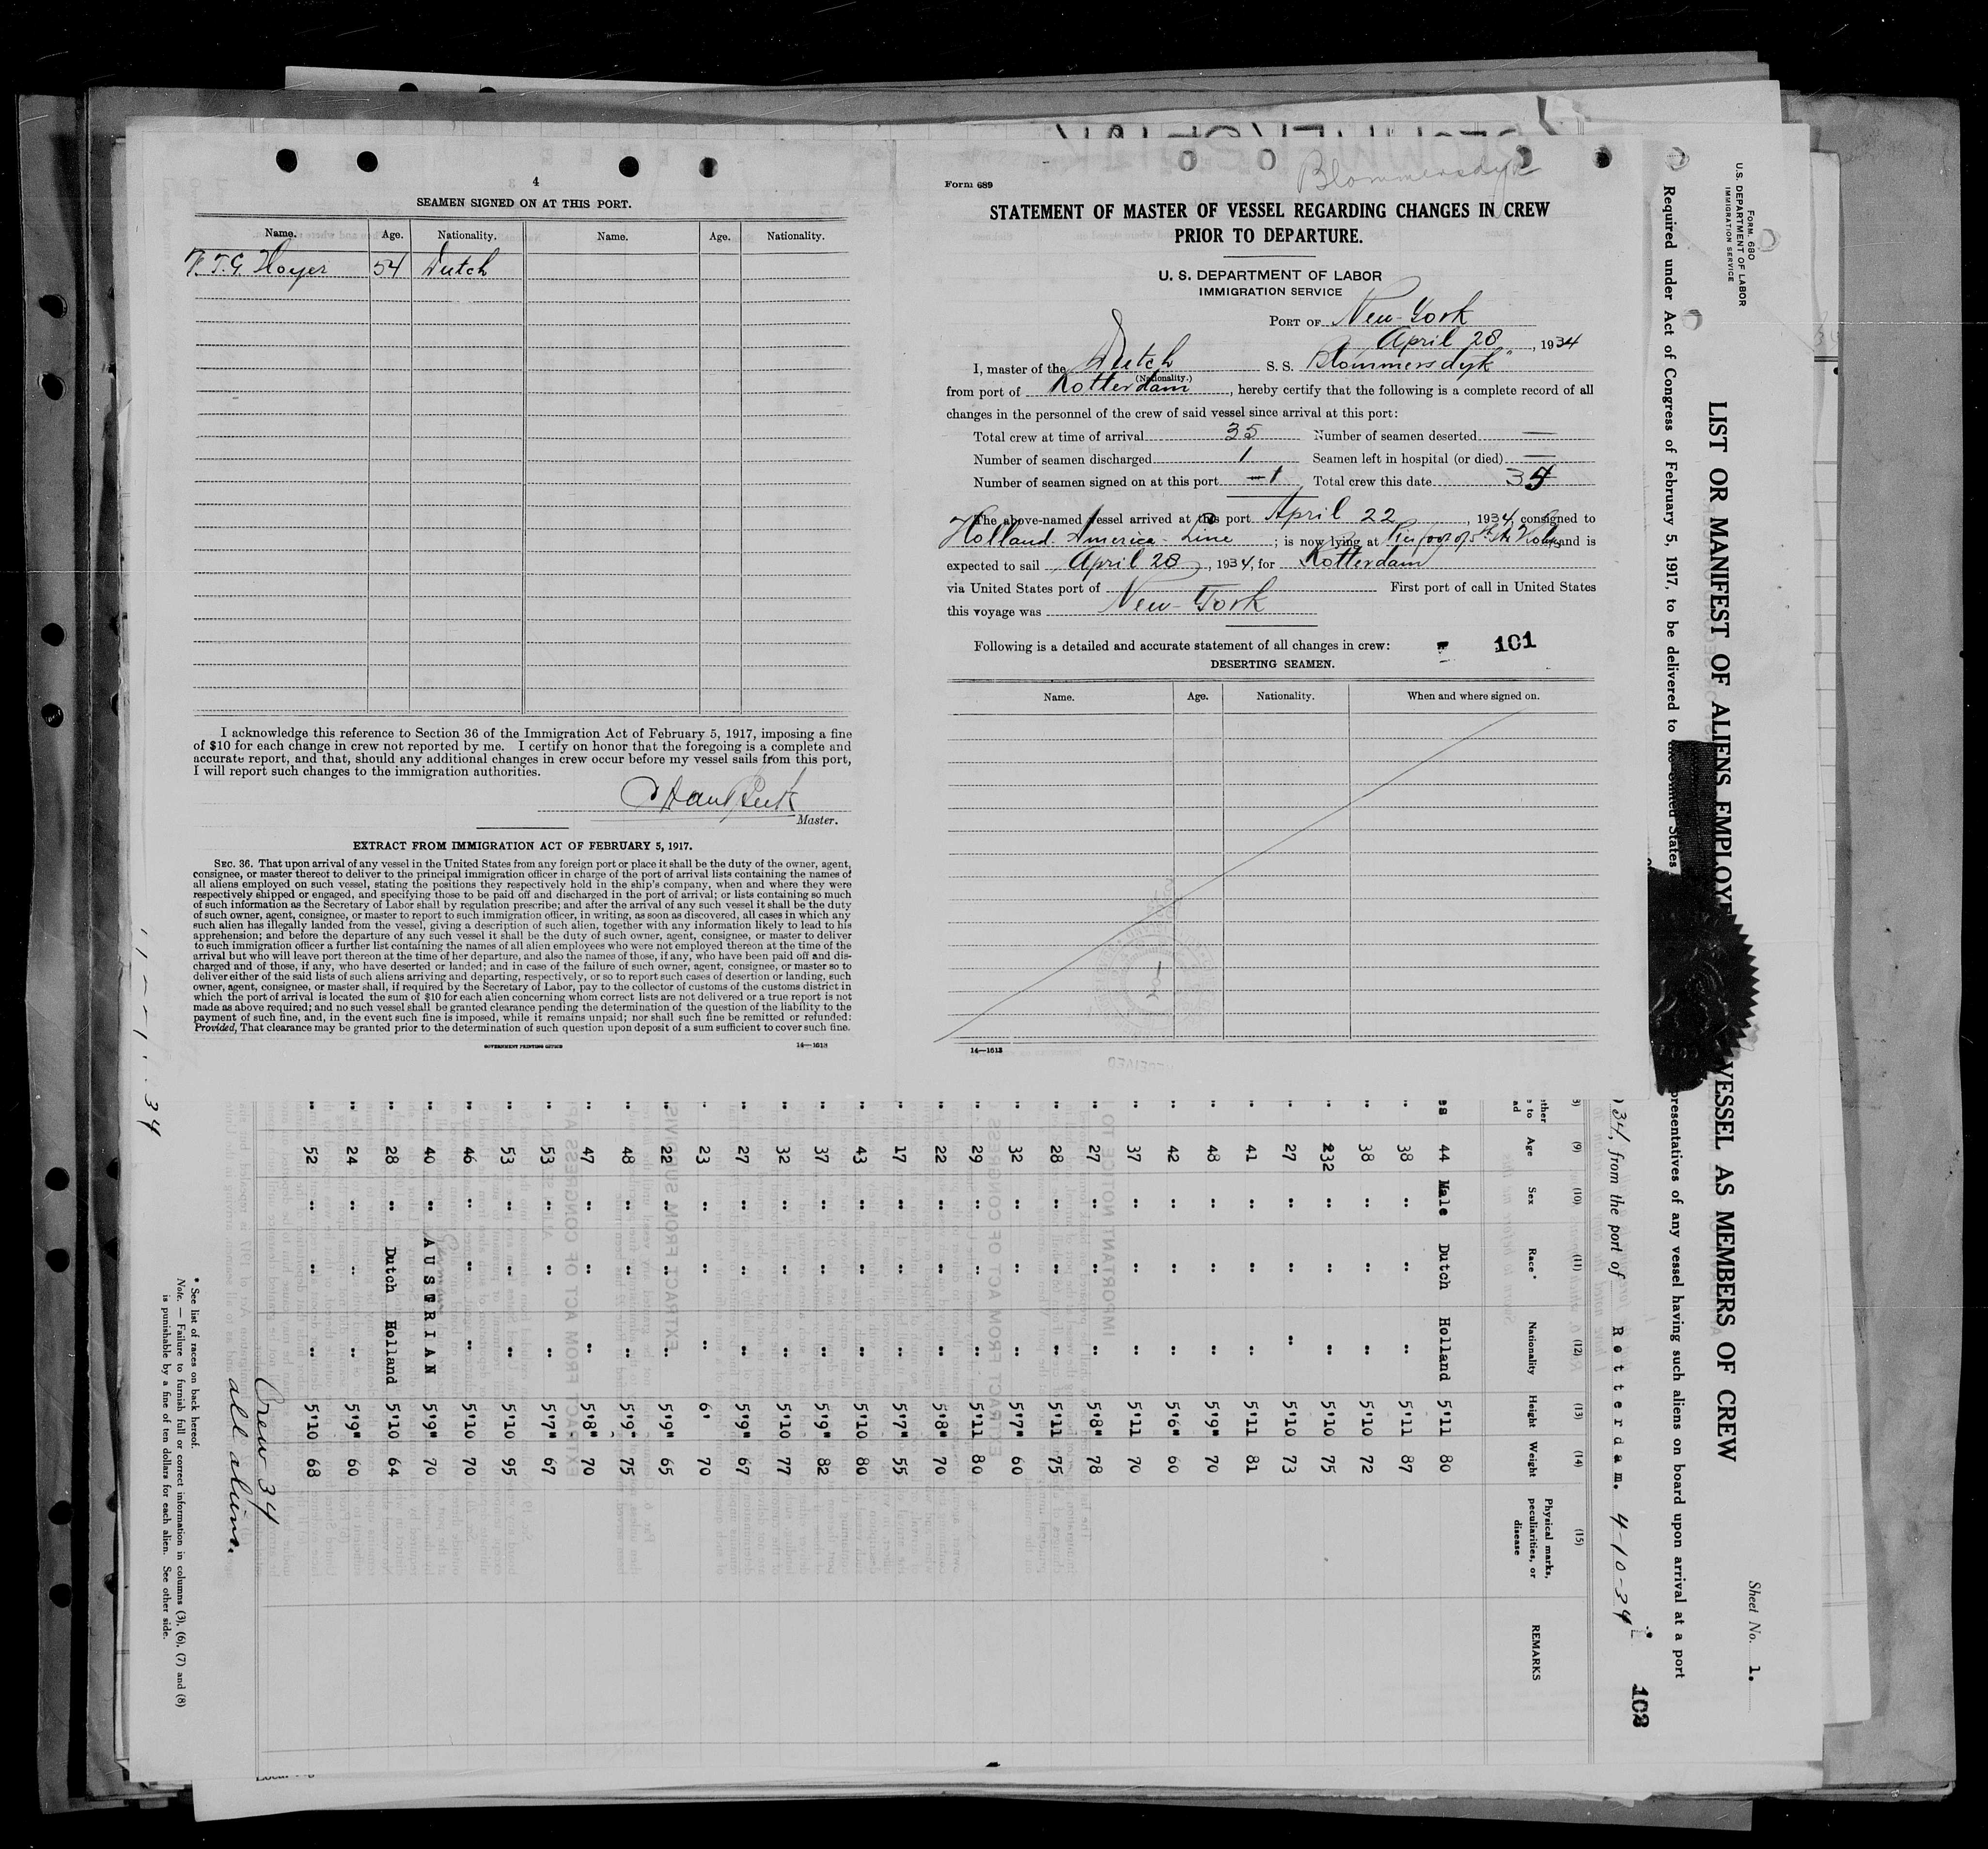 4
SEAMEN SIGNED ON AT THIS PORT.
Name. Age. Nationality. Name. Age. Nationality.
T.G. Hoyer 54 Dutch
I acknowledge this reference to Section 36 of the Immigration Act of February 5, 1917, imposing a fine
of $10 for each change in crew not reported by me. I certify on honor that the foregoing is a complete and
accurate report, and that, should any additional changes in crew occur before my vessel sails from this port,
I will report such changes to the immigration authorities.
Master.
EXTRACT FROM IMMIGRATION ACT OF FEBRUARY 5, 1917.
SEC. 36. That upon arrival of any vessel in the United States from any foreign port or place it shall be the duty of the owner, agent,
consignee, or master thereof to deliver to the principal immigration officer in charge of the port of arrival lists containing the names of
all aliens employed on such vessel, stating the positions they respectively hold in the ship's company, when and where they were
respectively shipped or engaged, and specifying those to be paid off and discharged in the port of arrival; or lists containing so much
of such information as the Secretary of Labor shall by regulation prescribe; and after the arrival of any such vessel it shall be the duty
of such owner, agent, consignee, or master to report to such immigration officer, in writing, as soon as discovered, all cases in which any
such alien has illegally landed from the vessel, giving a description of such alien, together with any information likely to lead to his
apprehension; and before the departure of any such vessel it shall be the duty of such owner, agent, consignee, or master to deliver
to such immigration officer a further list containing the names of all alien employees who were not employed thereon at the time of the
arrival but who will leave port thereon at the time of her departure, and also the names of those, if any, who have been paid off and dis-
charged and of those, if any, who have deserted or landed; and in case of the failure of such owner, agent, consignee, or master so to
deliver either of the said lists of such aliens arriving and departing, respectively, or so to report such cases of desertion or landing, such
owner, agent, consignee, or master shall, if required by the Secretary of Labor, pay to the collector of customs of the customs district in
which the port of arrival is located the sum of $10 for each alien concerning whom correct lists are not delivered or a true report is not
made as above required; and no such vessel shall be granted clearance pending the determination of the question of the liability to the
payment of such fine, and, in the event such fine is imposed, while it remains unpaid; nor shall such fine be remitted or refunded:
Provided, That clearance may be granted prior to the determination of such question upon deposit of a sum sufficient to cover such fine.
GOVERNMENT PRINTING OFFICE 14—1613
Blommersdyk
Form 689
STATEMENT OF MASTER OF VESSEL REGARDING CHANGES IN CREW
PRIOR TO DEPARTURE.
U. S. DEPARTMENT OF LABOR
IMMIGRATION SERVICE
PORT OF New-York
April 28, 1934
I, master of the Dutch S. S. Blommersdyk"
(Nationality.)
from port of Rotterdam, hereby certify that the following is a complete record of all
changes in the personnel of the crew of said vessel since arrival at this port:
Total crew at time of arrival 35 Number of seamen deserted —
Number of seamen discharged 1 Seamen left in hospital (or died) —
Number of seamen signed on at this port 1 Total crew this date 35
The above-named vessel arrived at this port April 22, 1934, consigned to
Holland America Line; is now lying at Pier foot of 5th St Hobk, and is
expected to sail April 28, 1934, for Rotterdam
via United States port of First port of call in United States
this voyage was New-York
Following is a detailed and accurate statement of all changes in crew: 101
DESERTING SEAMEN.
Name. Age. Nationality. When and where signed on.
14—1613
FORM 680
U.S. DEPARTMENT OF LABOR
IMMIGRATION SERVICE
Sheet No. 1.
LIST OR MANIFEST OF ALIENS EMPLOYE VESSEL AS MEMBERS OF CREW
Required under Act of Congress of February 5, 1917, to be delivered to the United States presentatives of any vessel having such aliens on board upon arrival at a port
34, from the port of Rotterdam. 4-10-34
103
(9) (10) (11) (12) (13) (14) (15)
Age Sex Race* Nationality Height Weight Physical marks, peculiarities, or disease REMARKS
44 Male Dutch Holland 5'11 80
38 " " " 5'11 87
38 " " " 5'10 72
32 " " " 5'10 75
27 " " " 5'10 73
41 " " " 5'11 81
48 " " " 5'9" 70
42 " " " 5'6" 60
37 " " " 5'11 70
27 " " " 5'8" 78
28 " " " 5'11 75
32 " " " 5'7" 60
29 " " " 5'11 80
22 " " " 5'8" 70
17 " " " 5'7" 55
43 " " " 5'10 80
37 " " " 5'9" 82
32 " " " 5'10 77
27 " " " 5'9" 67
23 " " " 6' 70
22 " " " 5'9" 65
48 " " " 5'9" 75
47 " " " 5'8" 70
53 " " " 5'7" 67
53 " " " 5'10 95
46 " " " 5'10 70
40 " AUSTRIAN 5'9" 70
28 " Dutch Holland 5'10 64
24 " " " 5'9" 60
52 " " " 5'10 68
Crew 34
all aliens.
* See list of races on back hereof.
Note.—Failure to furnish full or correct information in columns (3), (6), (7) and (8)
is punishable by a fine of ten dollars for each alien. See other side.